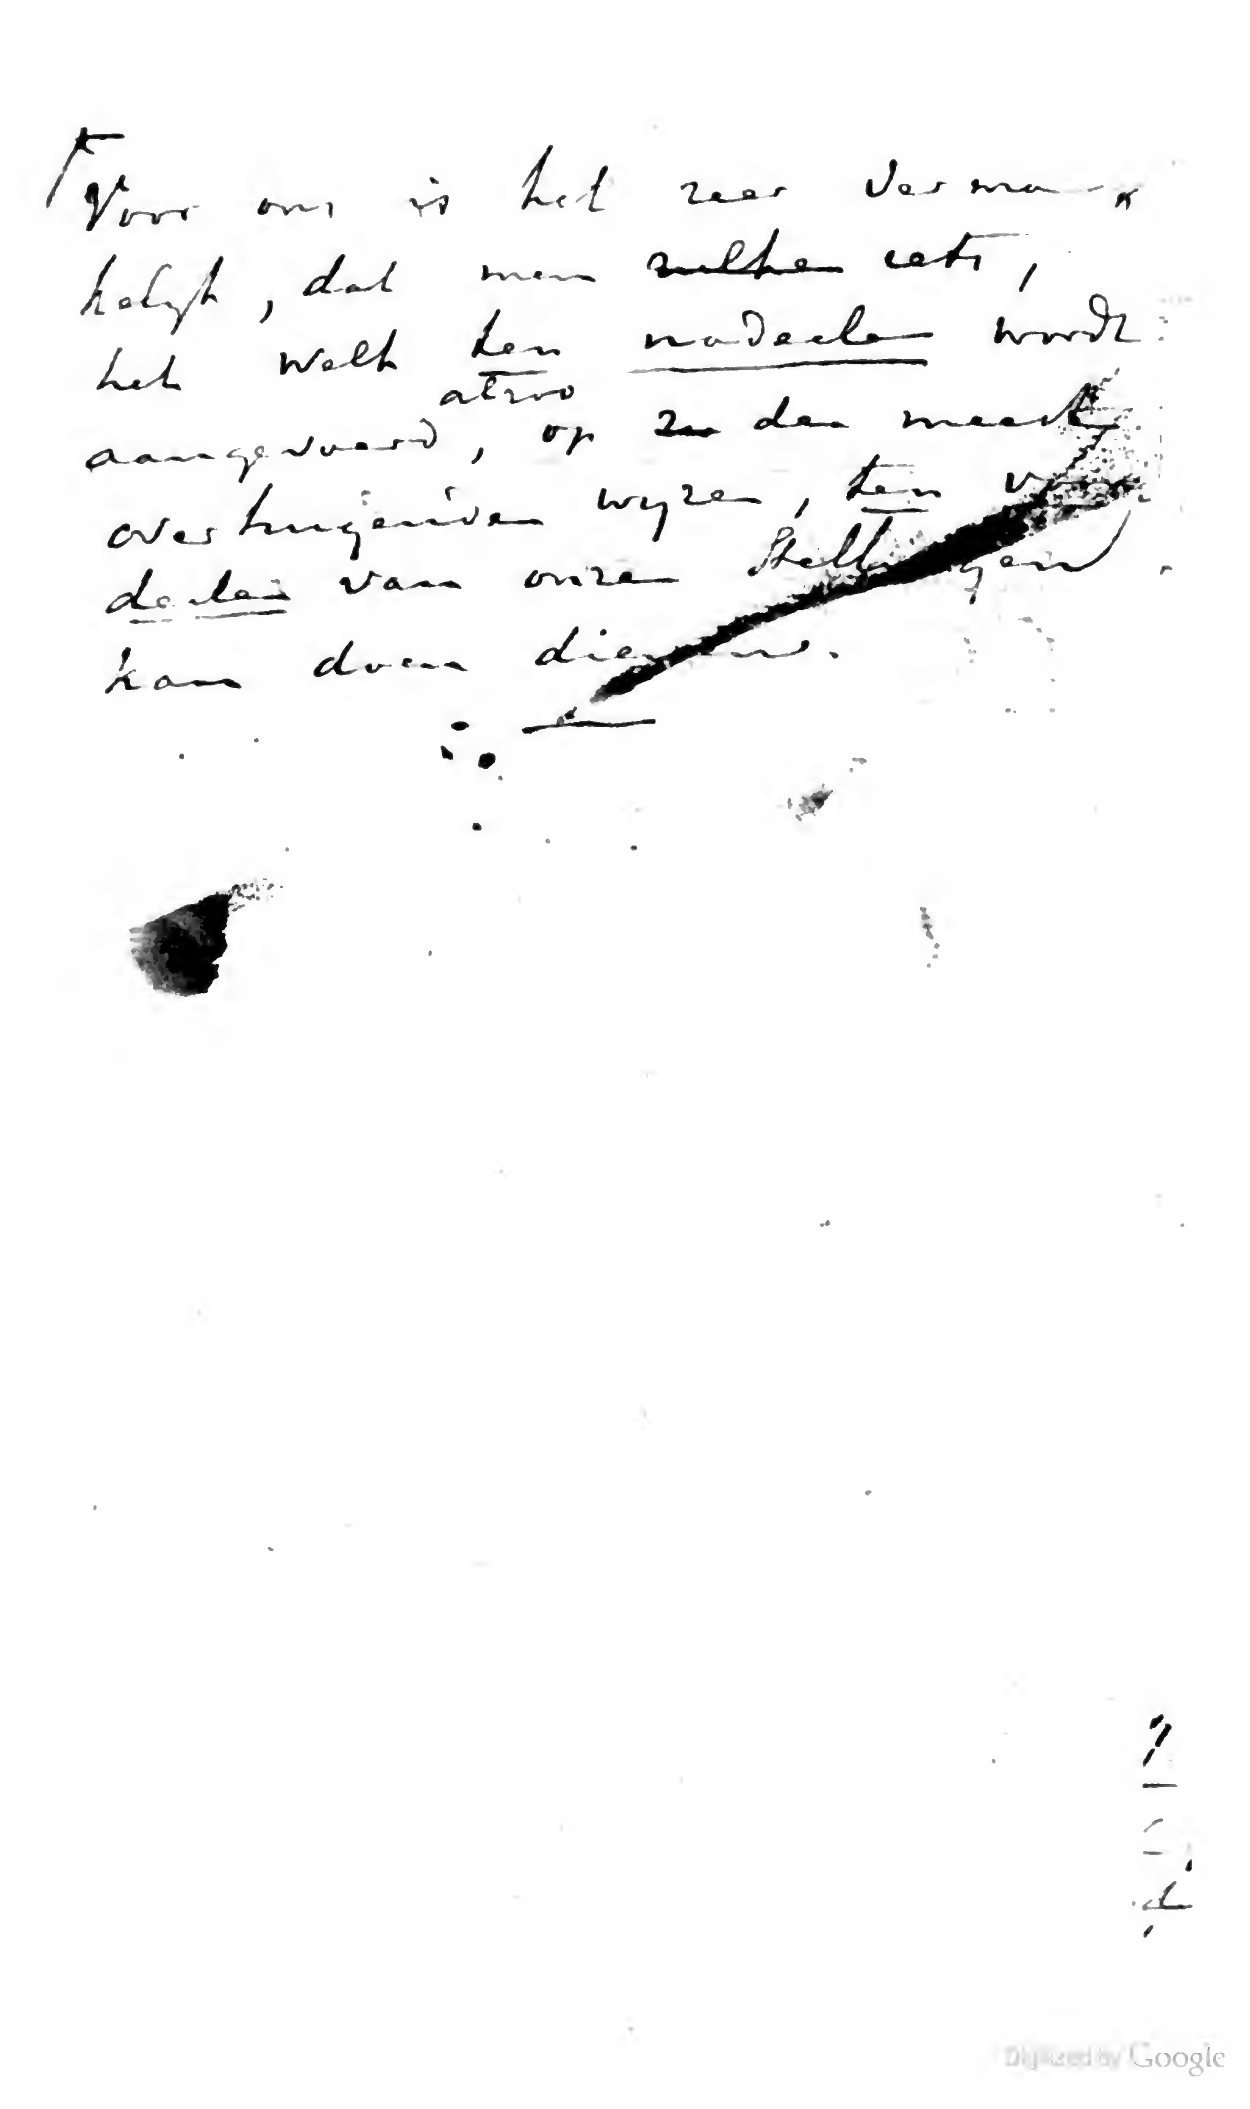 Voor ons is het zeer verma-
kelyk, dat men zulke iets,
het welk ten nadeele wordt
alzoo
aangevoerd, op zu den meest
overtuigenden wyzen, ten voor
deelen van onze Stellingen
kan doen dienen.
Digitized by Google